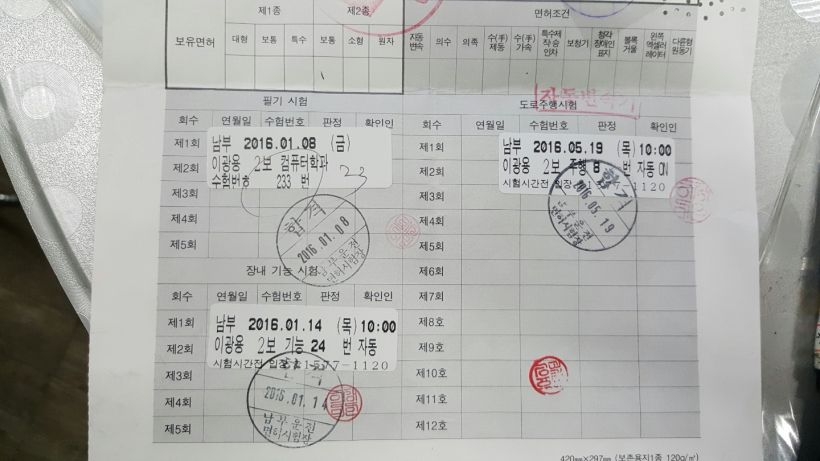 제1종 제2종 면허조건
보유면허 대형 보통 특수 보통 소형 원자 자동변속 의수 의족 수(手)제동 수(手)가속 특수제작승인차 보청기 청각장애인표지 볼록거울 왼쪽엑셀러레이터 다륜형원동기
자동변속기
필기 시험
회수 연월일 수험번호 판정 확인인
제1회 남부 2016.01.08 (금)
제2회 이광용 2보 컴퓨터학과
수험번호 233 번
33
제3회
제4회
제5회
합격
2016.01.08
남부운전
면허시험장
장내 기능 시험
회수 연월일 수험번호 판정 확인인
제1회 남부 2016.01.14 (목) 10:00
제2회 이광용 2보 기능 24 번 자동
시험시간전 입장 1577-1120
제3회
제4회
제5회
2016.01.14
남부운전
면허시험장
도로주행시험
회수 연월일 수험번호 판정 확인인
제1회 남부 2016.05.19 (목) 10:00
제2회 이광용 2보 주행 B 번 자동 ON
시험시간전 입장 1577-1120
제3회
제4회
제5회
제6회
제7회
제8호
제9호
제10호
제11호
제12호
합격
2016.05.19
남부운전
면허시험장
420㎜×297㎜ (보존용지1종 120g/㎡)